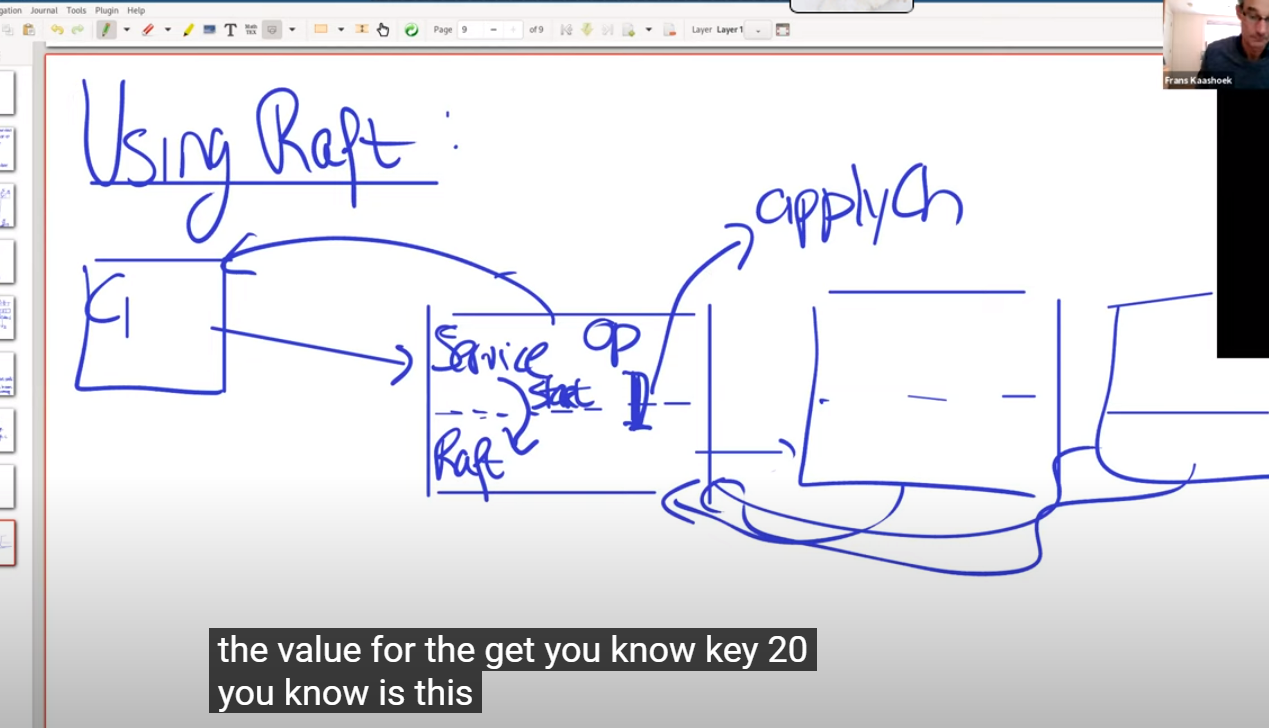 gation Journal Tools Plugin Help
Page 9 of 9 Layer Layer 1
Frans Kaashoek
Using Raft :
applyCh
C1
Service Op
Start
Raft
the value for the get you know key 20
you know is this